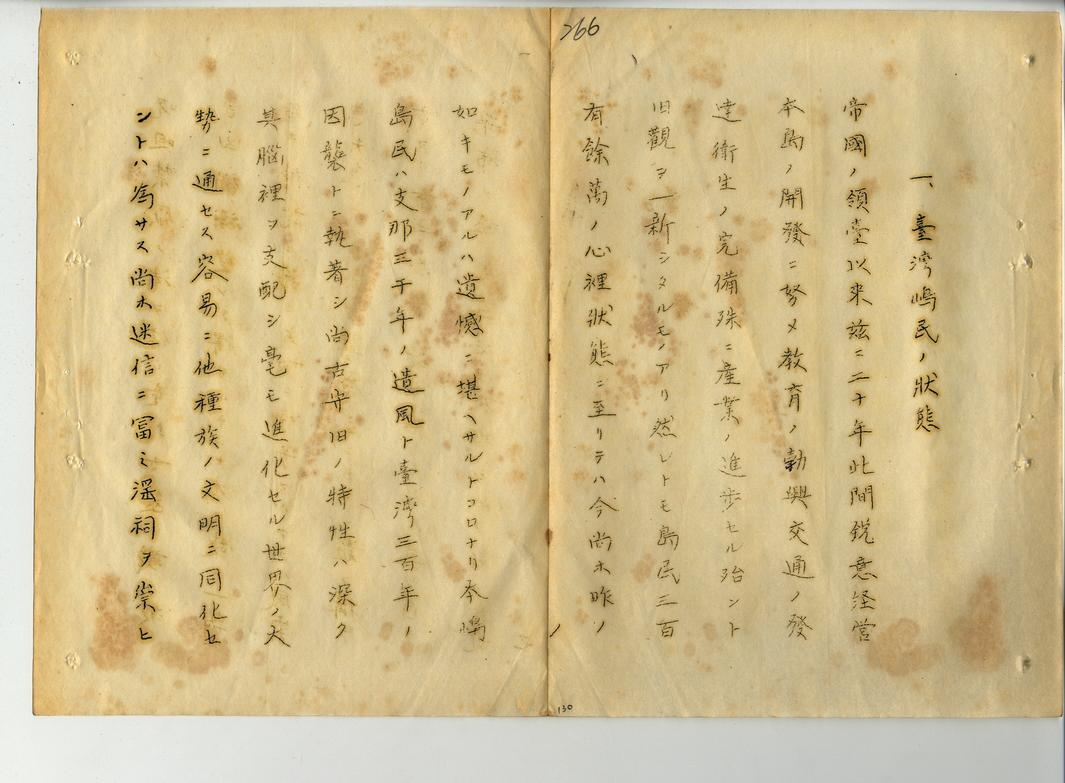 266
一、臺湾嶋民ノ狀態
帝國ノ領臺以来茲ニ二十年此間鋭意経営
本島ノ開發ニ努メ教育ノ勃興交通ノ發
達衛生ノ完備殊ニ産業ノ進歩セル殆ント
旧觀ヲ一新シタルモノアリ然レトモ島民三百
有餘萬ノ心裡狀態ニ至リテハ今尚ホ昨ノ
如キモノアルハ遺憾ニ堪ヘサルトコロナリ本嶋
島民ハ支那三千年ノ遺風ト臺湾三百年ノ
因襲トニ執著シ尚古守旧ノ特性ハ深ク
其腦裡ヲ支配シ毫モ進化セル世界ノ大
勢ニ通セス容易ニ他種族ノ文明ニ同化セ
ントハ為サス尚ホ迷信ニ富ミ淫祠ヲ崇ヒ
130